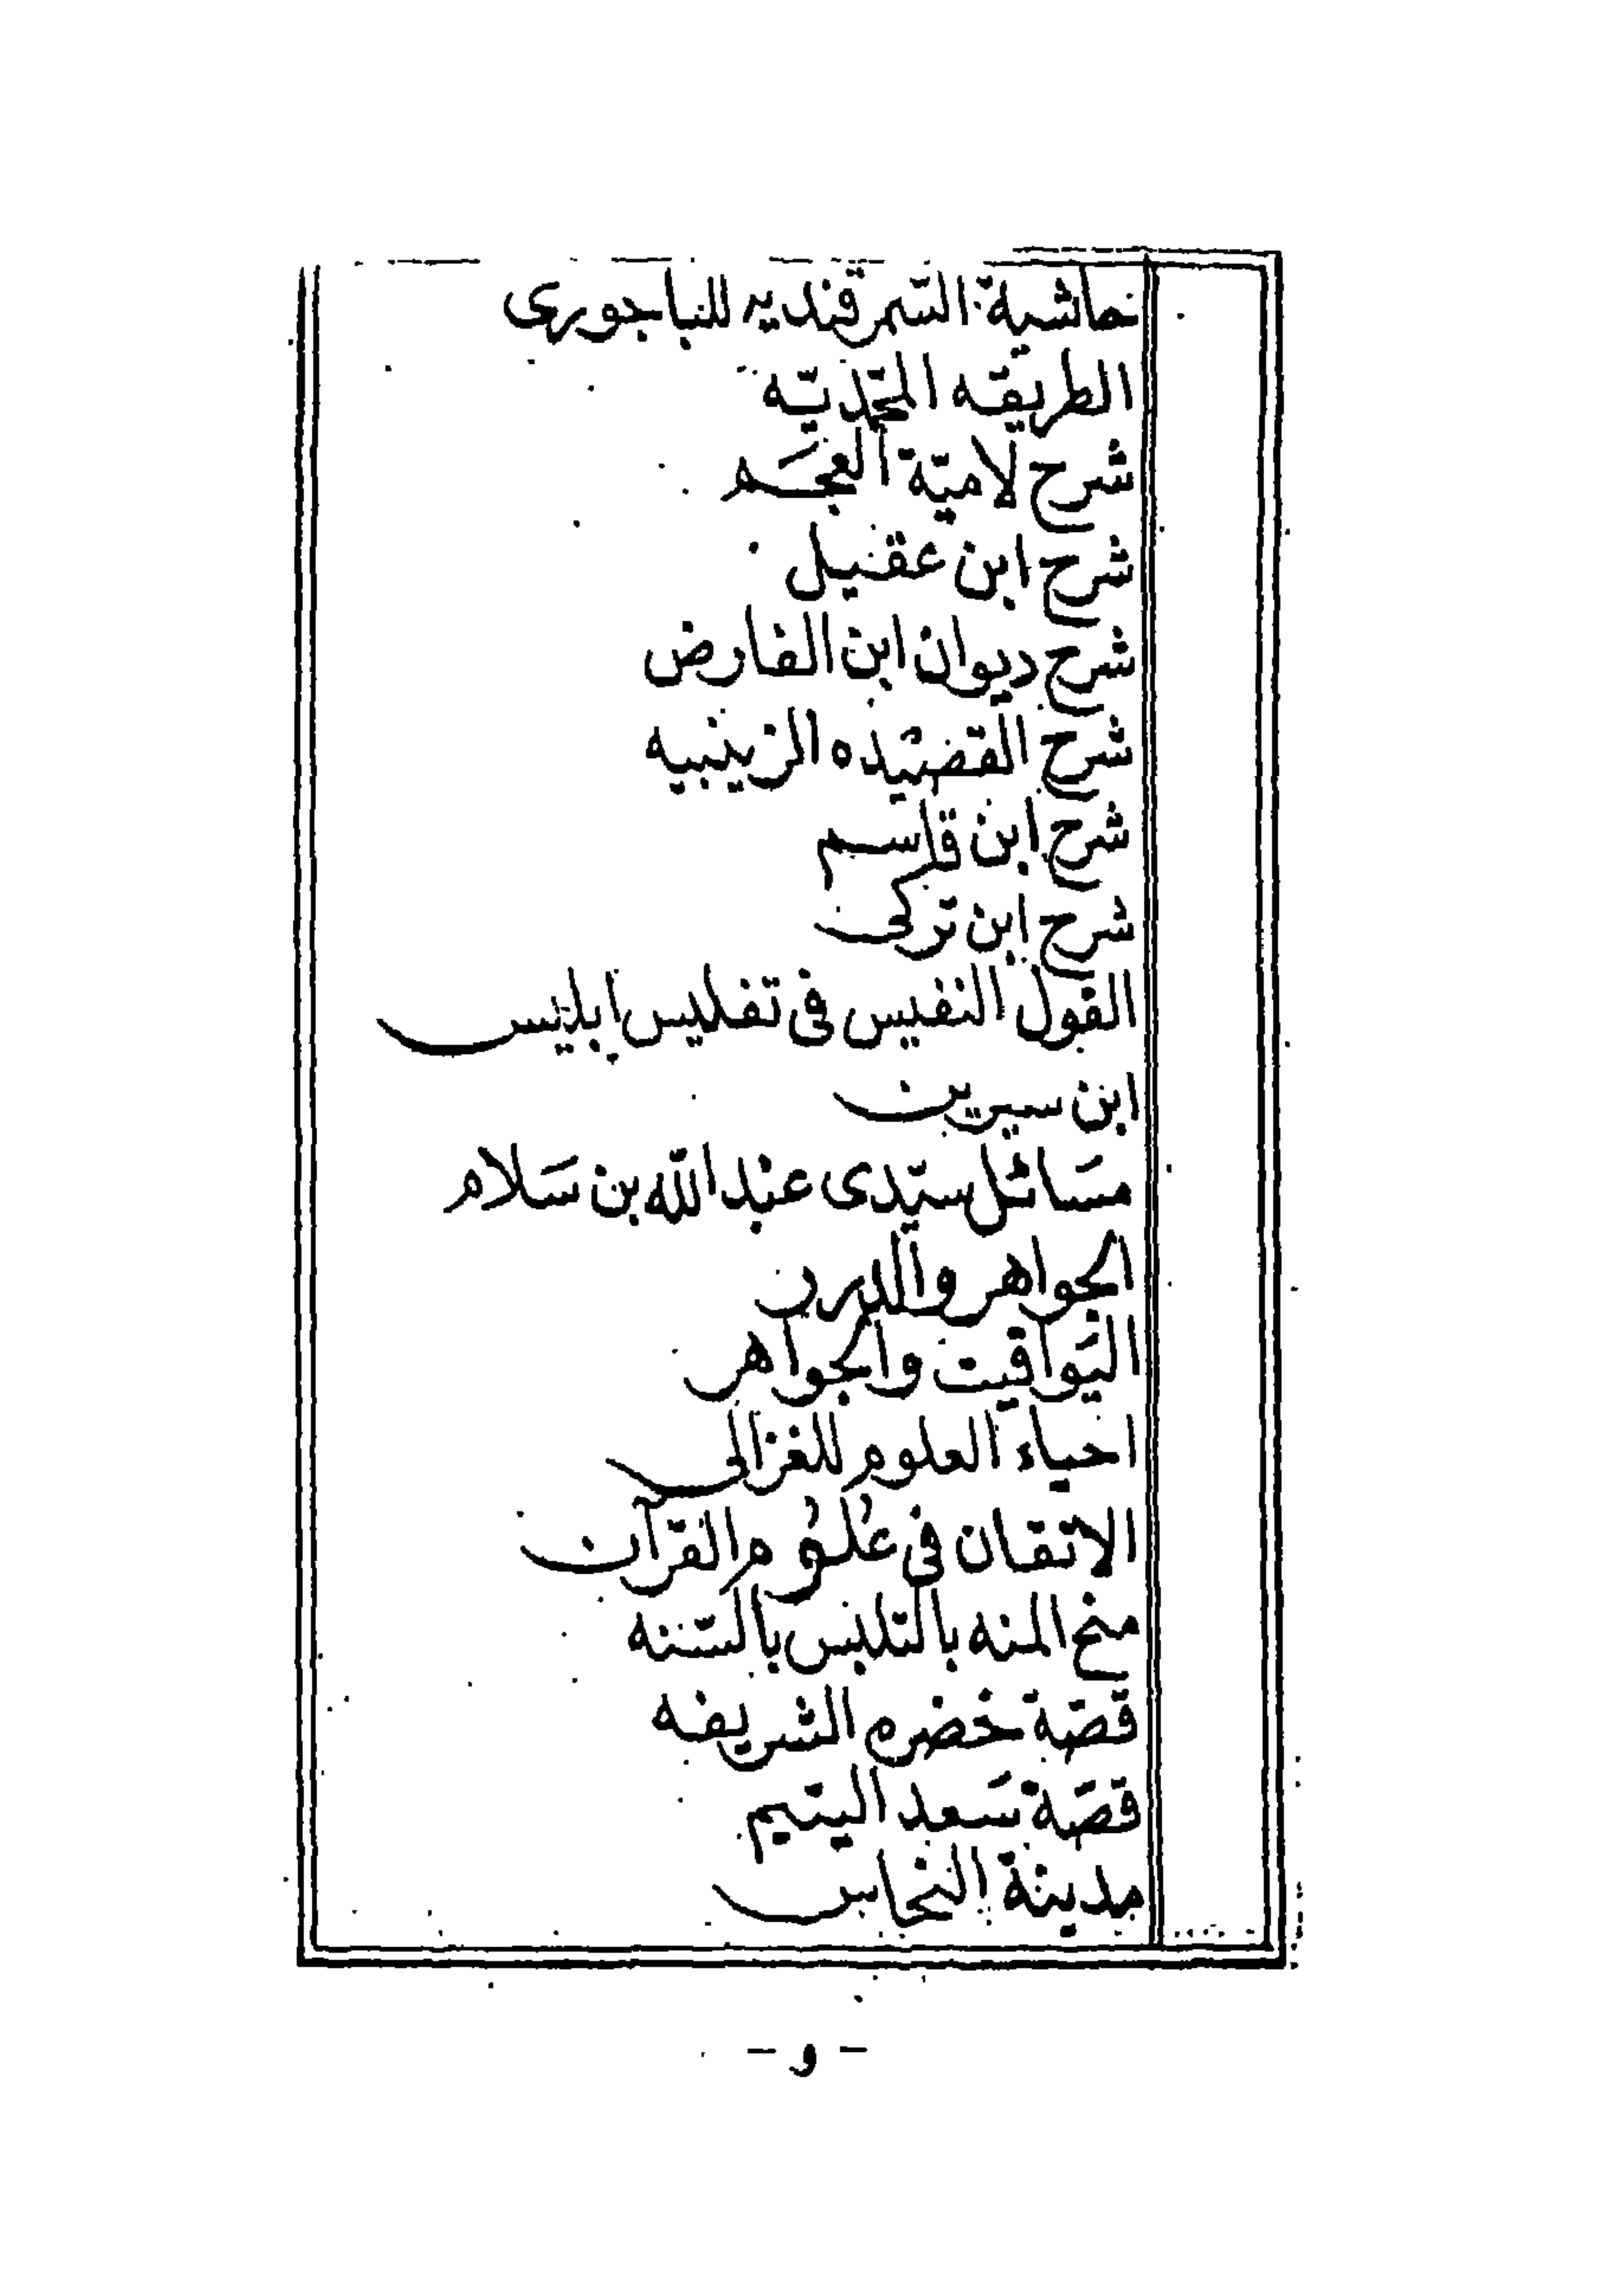 حاشية السّمرقنديه للباجورى
الطريقه المحمّديّه
شرح لاميّة العجَم
شرح ابن عقيل
شرح ديوان ابن الفارض
شرح القصيده الزينبيه
شرح ابن قاسم
شرح ابن تركى
القول النفيس فى تفليس ابليس
ابن سيرين
مسَائل سيّدى عبد الله بن سَلام
الجواهر والدرر
اليَواقيت والجواهر
احياء العلوم للغزالى
الاتقان فى عُلوُم القرآن
منح المنه بالتلبس بالسّنه
قصّة خضره الشريفه
قصّة سَعد اليتيم
مدينة النحاس
- و -